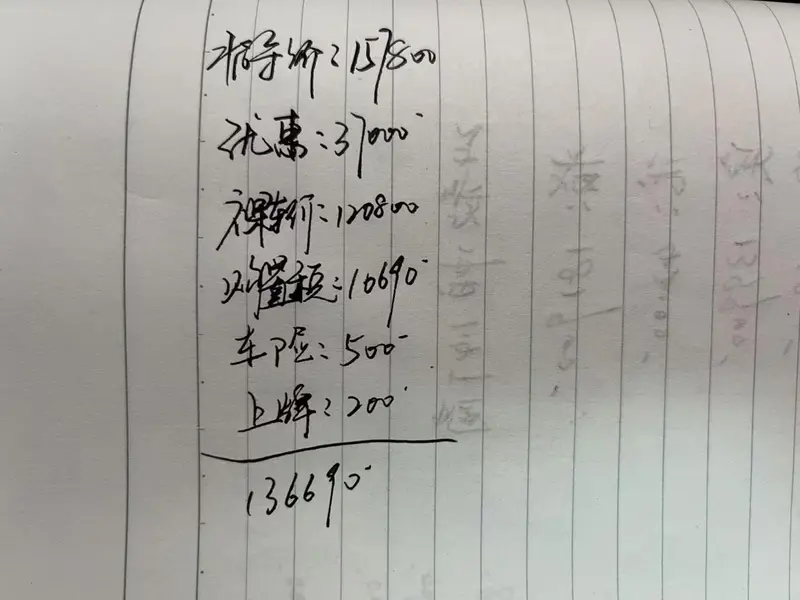 指导价:157800
优惠:37000
裸车价:120800
购置税:10690
车险:500
上牌:200
136690